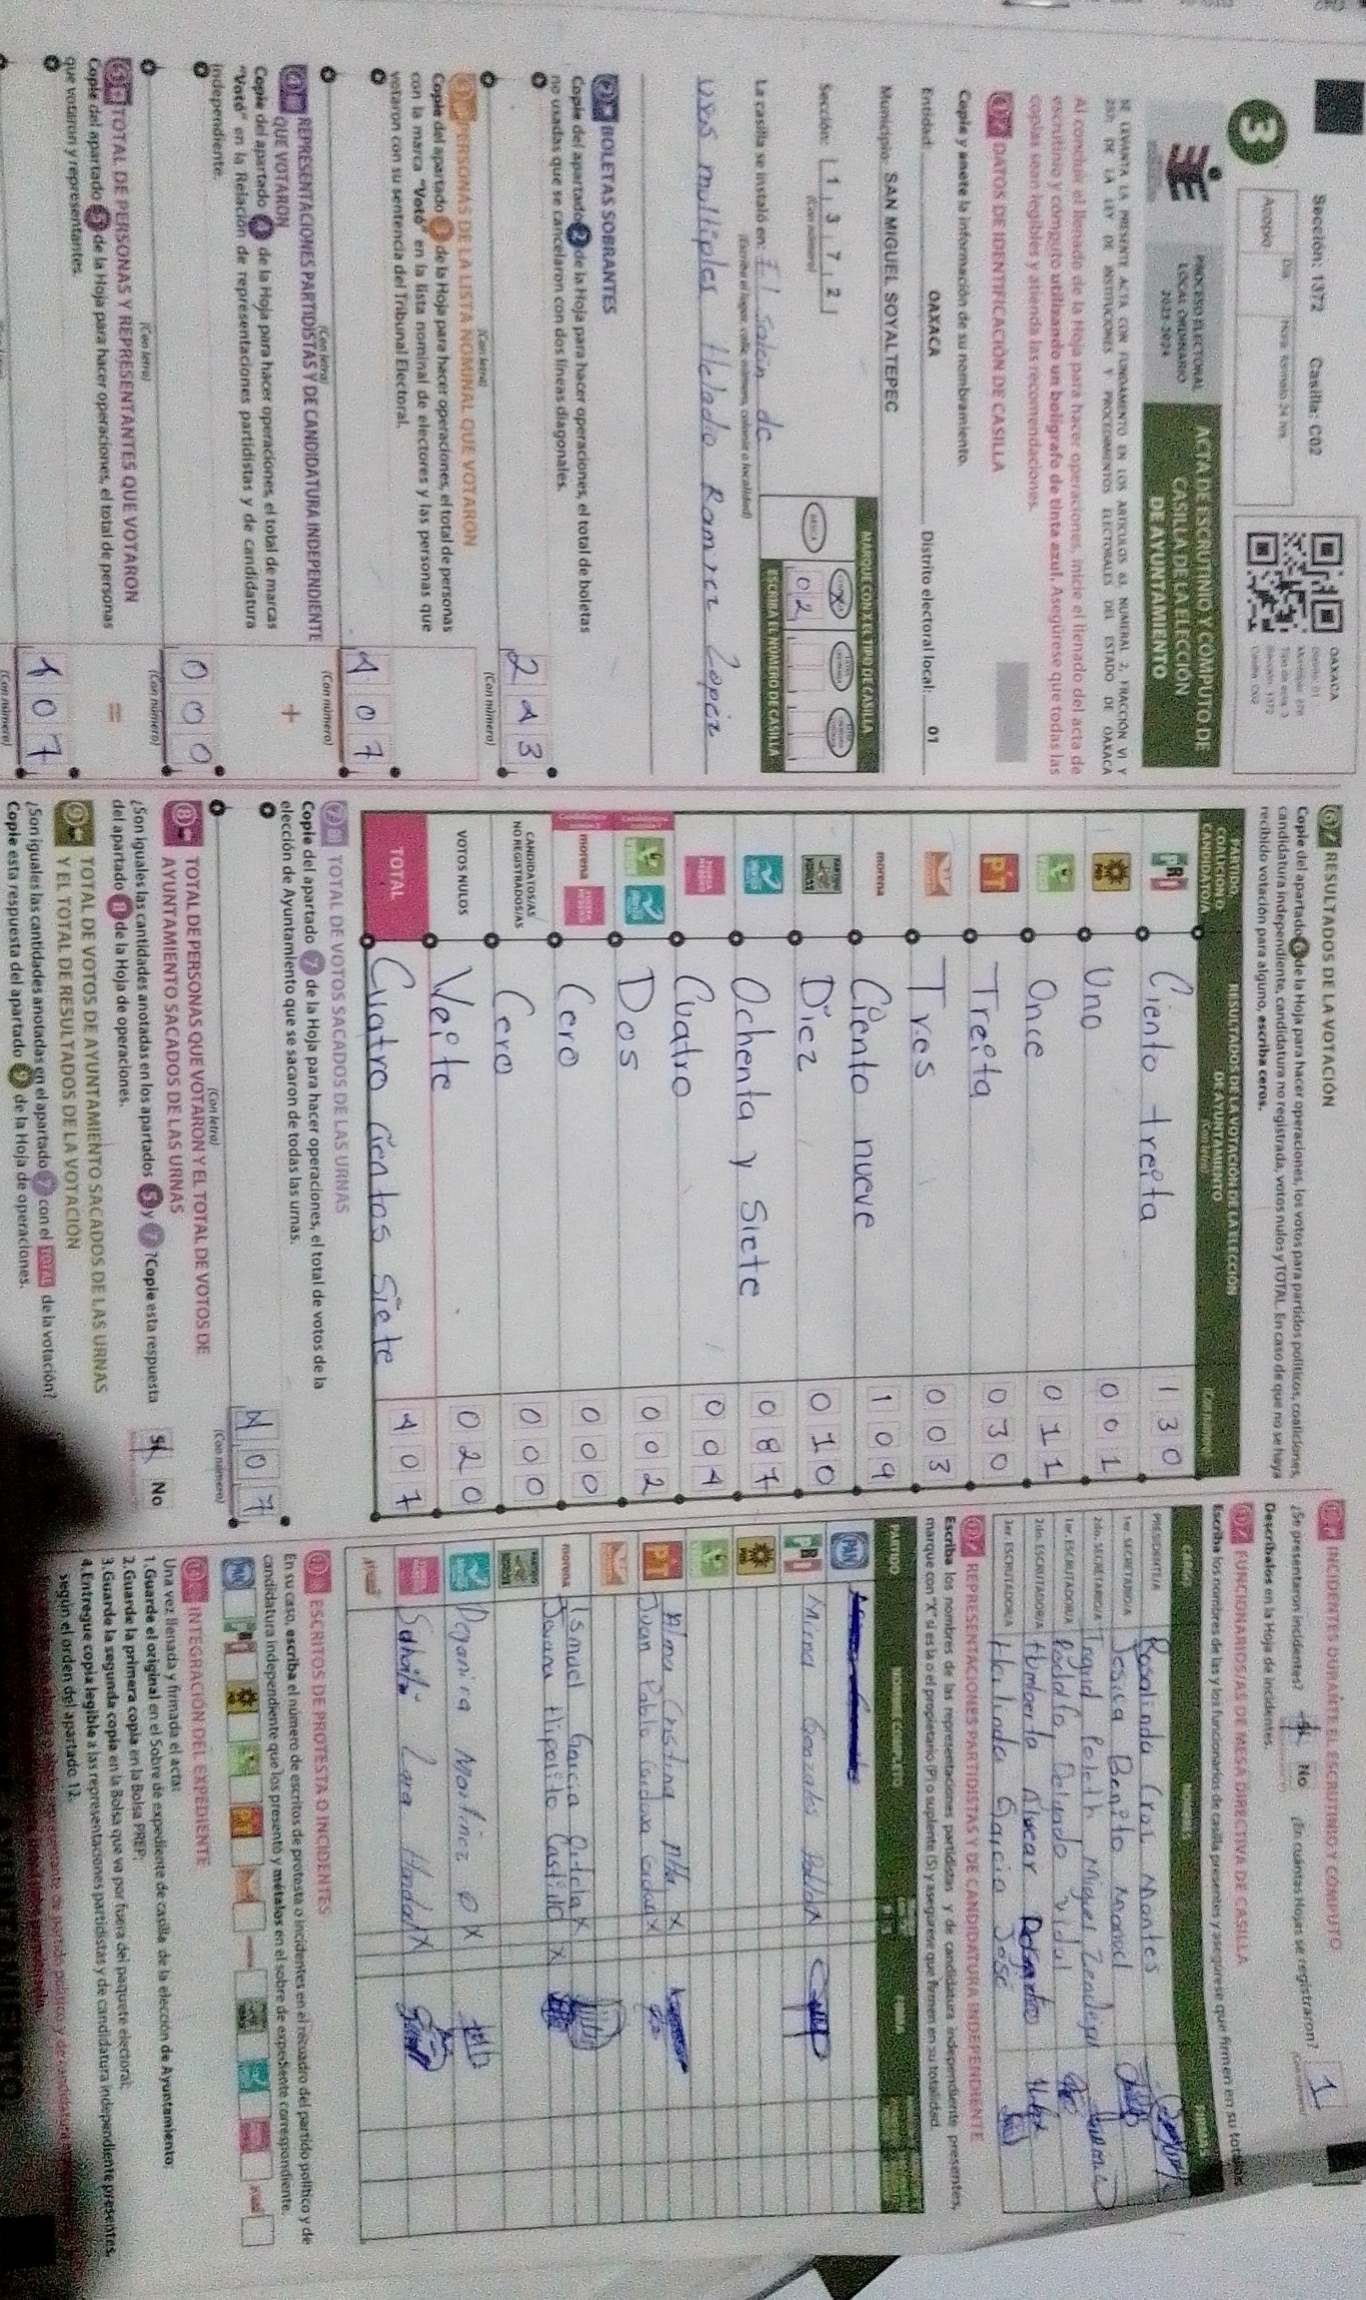 Sección: 1372 Casilla: C02
3
Acopio
Día
Hora formato 24 hrs
OAXACA
PROCESO ELECTORAL LOCAL ORDINARIO 2023-2024
ACTA DE ESCRUTINIO Y CÓMPUTO DE
CASILLA DE LA ELECCIÓN
DE AYUNTAMIENTO
SE LEVANTA LA PRESENTE ACTA CON FUNDAMENTO EN LOS ARTÍCULOS 83, NUMERAL 2, FRACCIÓN VI Y
237, DE LA LEY DE INSTITUCIONES Y PROCEDIMIENTOS ELECTORALES DEL ESTADO DE OAXACA
Al concluir el llenado de la Hoja para hacer operaciones, inicie el llenado del acta de
escrutinio y cómputo utilizando un bolígrafo de tinta azul. Asegúrese que todas las
copias sean legibles y atienda las recomendaciones.
1 DATOS DE IDENTIFICACIÓN DE CASILLA
Copie y anote la información de su nombramiento.
Entidad: OAXACA Distrito electoral local: 01
Municipio: SAN MIGUEL SOYALTEPEC
Sección: 1 3 7 2
(Con número)
MARQUE CON X EL TIPO DE CASILLA
02
ESCRIBA EL NÚMERO DE CASILLA
La casilla se instaló en: El Salón de
(Escriba el lugar: calle, número, colonia o localidad)
usos multiples Heladio Ramirez Lopez
2 BOLETAS SOBRANTES
Copie del apartado 2 de la Hoja para hacer operaciones, el total de boletas
no usadas que se cancelaron con dos líneas diagonales.
213
(Con letra) (Con número)
3 PERSONAS DE LA LISTA NOMINAL QUE VOTARON
Copie del apartado 3 de la Hoja para hacer operaciones, el total de personas
con la marca "Votó" en la lista nominal de electores y las personas que
votaron con su sentencia del Tribunal Electoral.
407
(Con letra) (Con número)
4 REPRESENTACIONES PARTIDISTAS Y DE CANDIDATURA INDEPENDIENTE
QUE VOTARON
+
Copie del apartado 4 de la Hoja para hacer operaciones, el total de marcas
"Votó" en la Relación de representaciones partidistas y de candidatura
independiente.
000
(Con letra) (Con número)
5 TOTAL DE PERSONAS Y REPRESENTANTES QUE VOTARON
=
Copie del apartado 5 de la Hoja para hacer operaciones, el total de personas
que votaron y representantes.
407
(Con número)
6 RESULTADOS DE LA VOTACIÓN
Copie del apartado 6 de la Hoja para hacer operaciones, los votos para partidos políticos, coaliciones,
candidatura independiente, candidatura no registrada, votos nulos y TOTAL. En caso de que no se haya
recibido votación para alguno, escriba ceros.
PARTIDO, COALICIÓN O CANDIDATO/A
RESULTADOS DE LA VOTACIÓN DE LA ELECCIÓN DE AYUNTAMIENTO
(Con letra) (Con número)
PRI Ciento treita 130
PRD Uno 001
Once 011
PT Treita 030
Tres 003
morena Ciento nueve 109
Diez 010
Ochenta y Siete 087
Cuatro 004
Dos 002
morena Cero 000
CANDIDATOS/AS NO REGISTRADOS/AS Cero 000
VOTOS NULOS Veite 020
TOTAL Cuatro Cientos Siete 407
7 TOTAL DE VOTOS SACADOS DE LAS URNAS
Copie del apartado 7 de la Hoja para hacer operaciones, el total de votos de la
elección de Ayuntamiento que se sacaron de todas las urnas.
407
(Con letra) (Con número)
8 TOTAL DE PERSONAS QUE VOTARON Y EL TOTAL DE VOTOS DE
AYUNTAMIENTO SACADOS DE LAS URNAS
¿Son iguales las cantidades anotadas en los apartados 5 y 7? Copie esta respuesta
del apartado 8 de la Hoja de operaciones.
Sí No
9 TOTAL DE VOTOS DE AYUNTAMIENTO SACADOS DE LAS URNAS
Y EL TOTAL DE RESULTADOS DE LA VOTACIÓN
¿Son iguales las cantidades anotadas en el apartado 7 con el TOTAL de la votación?
Copie esta respuesta del apartado 9 de la Hoja de operaciones.
10 INCIDENTES DURANTE EL ESCRUTINIO Y CÓMPUTO
¿Se presentaron incidentes? Sí No ¿En cuántas Hojas se registraron? 1
Descríbalos en la Hoja de incidentes.
11 FUNCIONARIOS/AS DE MESA DIRECTIVA DE CASILLA
Escriba los nombres de las y los funcionarios de casilla presentes y asegúrese que firmen en su totalidad.
CARGO NOMBRES FIRMAS
PRESIDENTE/A Rosalinda Cruz Montes
1er. SECRETARIO/A Jesica Benito Manuel
2do. SECRETARIO/A Miguel
1er. ESCRUTADOR/A Rodolfo Delgado Vidal
2do. ESCRUTADOR/A
3er. ESCRUTADOR/A Garcia José
12 REPRESENTACIONES PARTIDISTAS Y DE CANDIDATURA INDEPENDIENTE
Escriba los nombres de las representaciones partidistas y de candidatura independiente presentes,
marque con "X" si es la o el propietario (P) o suplente (S) y asegúrese que firmen en su totalidad.
PARTIDO NOMBRE COMPLETO FIRMA
PAN
PRI Mirna Gonzales
PRD
PT Alma Cristina X
Juan Pablo X
morena Ismael Garcia X
Jovana Hipolito Castillo X
Martinez X
Lara X
13 ESCRITOS DE PROTESTA O INCIDENTES
En su caso, escriba el número de escritos de protesta o incidentes en el recuadro del partido político y de
candidatura independiente que los presentó y métalos en el sobre de expediente correspondiente.
PAN PRI PRD PT
INTEGRACIÓN DEL EXPEDIENTE
Una vez llenada y firmada el acta:
1. Guarde el original en el Sobre de expediente de casilla de la elección de Ayuntamiento;
2. Guarde la primera copia en la Bolsa PREP;
3. Guarde la segunda copia en la Bolsa que va por fuera del paquete electoral;
4. Entregue copia legible a las representaciones partidistas y de candidatura independiente presentes,
según el orden del apartado 12.